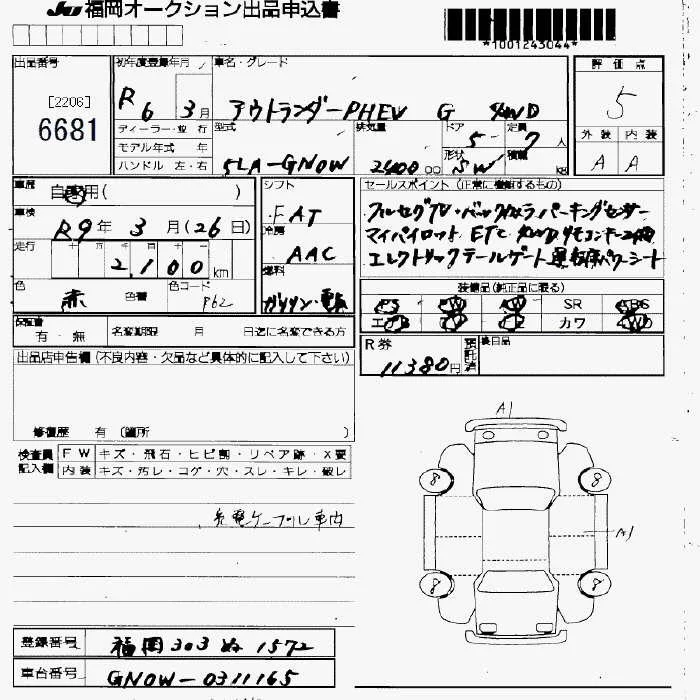 JU 福岡オークション出品申込書
*1001243044*
出品番号 初年度登録年月 車名・グレード 評価点
[2206]
6681
R6 3月 アウトランダーPHEV G 4WD 5
ディーラー・並行 型式 排気量 ドア 定員 外装 内装
モデル年式 年 5LA-GN0W 2400cc 5 7人 A A
ハンドル 左・右 形状 SW 積載 kg
車歴 自家用( ) シフト FAT セールスポイント (正常に機能するもの)
車検 R9年 3月(26日) 冷房 AAC フルセグTV・バックカメラ パーキングセンサー
走行 十 万 千 百 十 一 マイパイロット ETC 4WD リモコンキー2個
2,100km 燃料 ガソリン・電気 エレクトリックテールゲート 運転席パワーシート
色 赤 色替 色コード P62 装備品(純正品に限る)
PS PW AW SR ABS
エアB カワ 4WD
保証書 有・無 名変期限 月 日迄に名変できる方 R券 11380円 預託済 後日品
出品店申告欄(不良内容・欠品など具体的に記入して下さい)
修復歴 有 (箇所 )
検査員記入欄 FW キズ・飛石・ヒビ割・リペア跡・X要
内装 キズ・汚レ・コゲ・穴・スレ・キレ・破レ
A1
8 8
充電ケーブル車内 A1
8 8
登録番号 福岡 303 ぬ 1572
車台番号 GN0W-0311165